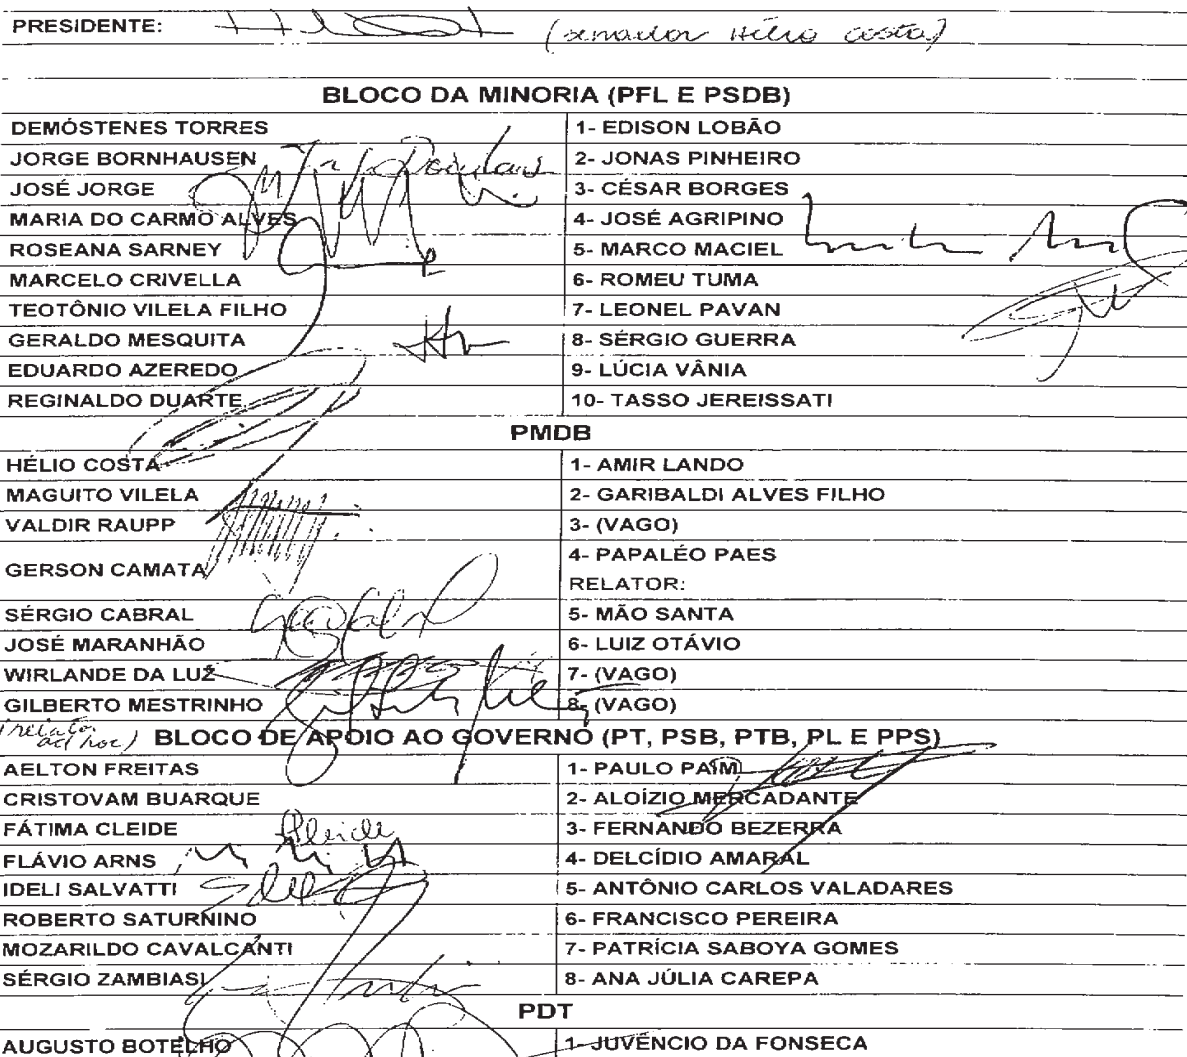 PRESIDENTE: (senador Hélio Costa)
BLOCO DA MINORIA (PFL E PSDB)
DEMÓSTENES TORRES 1- EDISON LOBÃO
JORGE BORNHAUSEN 2- JONAS PINHEIRO
JOSÉ JORGE 3- CÉSAR BORGES
MARIA DO CARMO ALVES 4- JOSÉ AGRIPINO
ROSEANA SARNEY 5- MARCO MACIEL
MARCELO CRIVELLA 6- ROMEU TUMA
TEOTÔNIO VILELA FILHO 7- LEONEL PAVAN
GERALDO MESQUITA 8- SÉRGIO GUERRA
EDUARDO AZEREDO 9- LÚCIA VÂNIA
REGINALDO DUARTE 10- TASSO JEREISSATI
PMDB
HÉLIO COSTA 1- AMIR LANDO
MAGUITO VILELA 2- GARIBALDI ALVES FILHO
VALDIR RAUPP 3- (VAGO)
GERSON CAMATA 4- PAPALÉO PAES
RELATOR:
SÉRGIO CABRAL 5- MÃO SANTA
JOSÉ MARANHÃO 6- LUIZ OTÁVIO
WIRLANDE DA LUZ 7- (VAGO)
GILBERTO MESTRINHO 8- (VAGO)
(relator ad hoc) BLOCO DE APOIO AO GOVERNO (PT, PSB, PTB, PL E PPS)
AELTON FREITAS 1- PAULO PAIM
CRISTOVAM BUARQUE 2- ALOÍZIO MERCADANTE
FÁTIMA CLEIDE Cleide 3- FERNANDO BEZERRA
FLÁVIO ARNS 4- DELCÍDIO AMARAL
IDELI SALVATTI 5- ANTÔNIO CARLOS VALADARES
ROBERTO SATURNINO 6- FRANCISCO PEREIRA
MOZARILDO CAVALCANTI 7- PATRÍCIA SABOYA GOMES
SÉRGIO ZAMBIASI 8- ANA JÚLIA CAREPA
PDT
AUGUSTO BOTELHO 1- JUVÊNCIO DA FONSECA